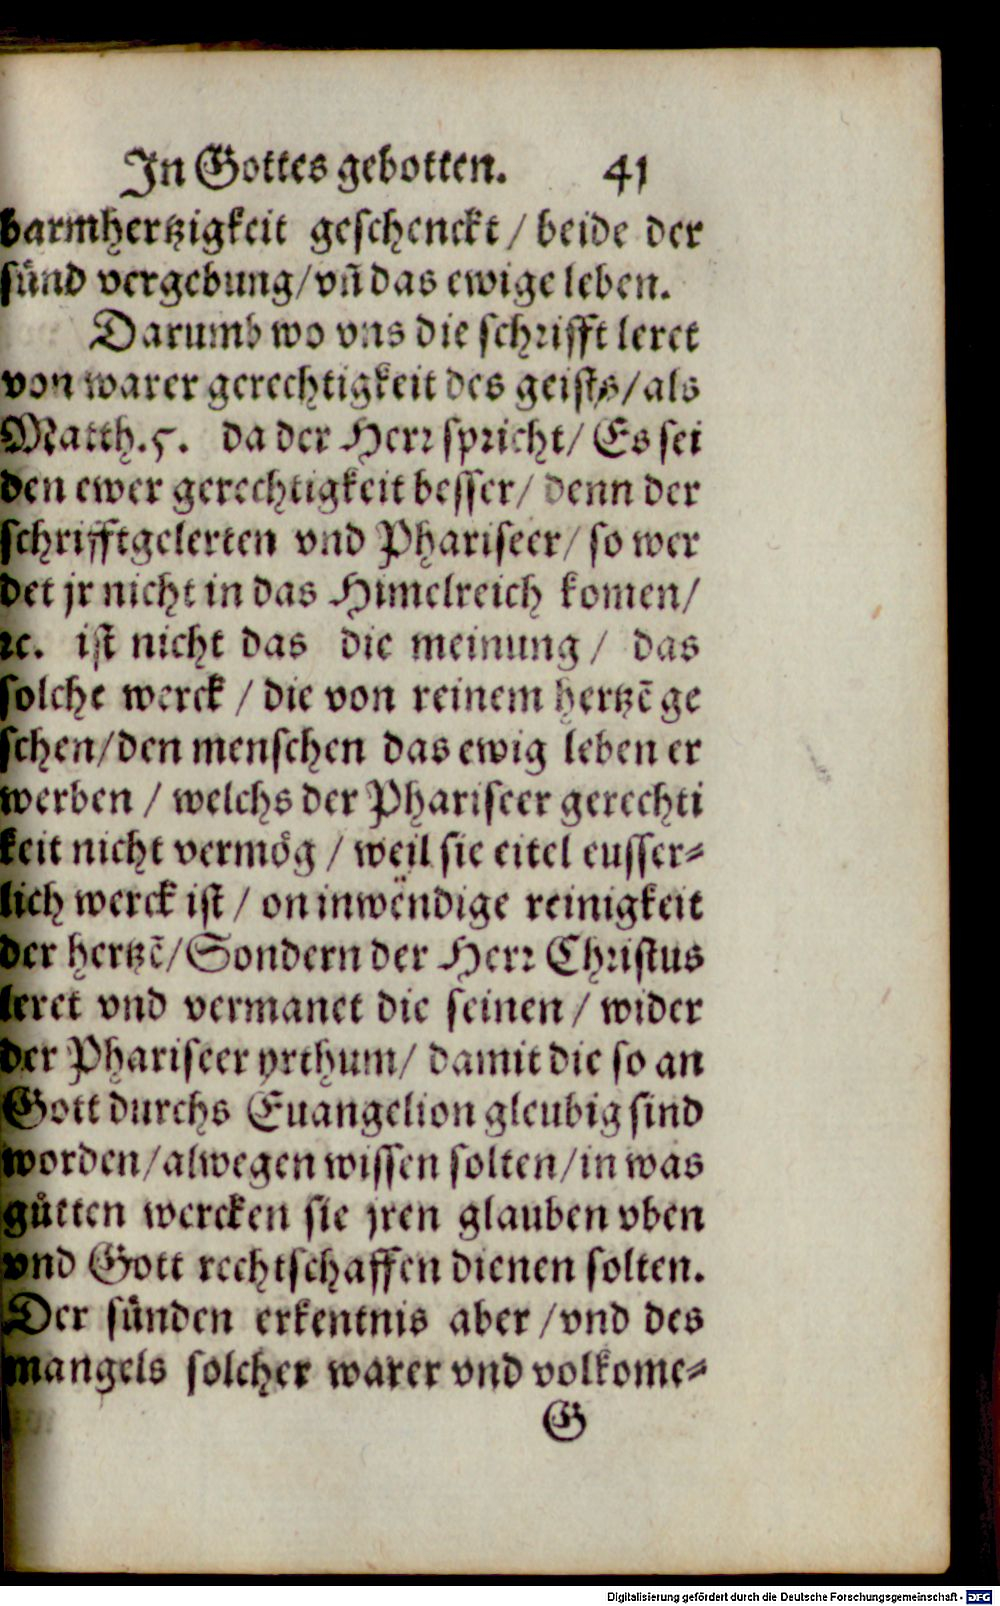 In Gottes gebotten. 41
barmhertzigkeit geschenckt / beide der
sünd vergebung/vñ das ewige leben.
Darumb wo vns die schrifft leret
von warer gerechtigkeit des geists/als
Matth.5. da der Herr spricht/ Es sei
den ewer gerechtigkeit besser/ denn der
schrifftgelerten vnd Phariseer/ so wer
det jr nicht in das Himelreich komen/
ꝛc. ist nicht das die meinung / das
solche werck / die von reinem hertzẽ ge
schen/den menschen das ewig leben er
werben / welchs der Phariseer gerechti
keit nicht vermög / weil sie eitel eusser⸗
lich werck ist / on inwendige reinigkeit
der hertzẽ/Sondern der Herr Christus
leret vnd vermanet die seinen / wider
der Phariseer yrthum/ damit die so an
Gott durchs Euangelion gleubig sind
worden/alwegen wissen solten/in was
gůtten wercken sie jren glauben vben
vnd Gott rechtschaffen dienen solten.
Der sünden erkentnis aber /vnd des
mangels solcher warer vnd volkome⸗
G
Digitalisierung gefördert durch die Deutsche Forschungsgemeinschaft - DFG